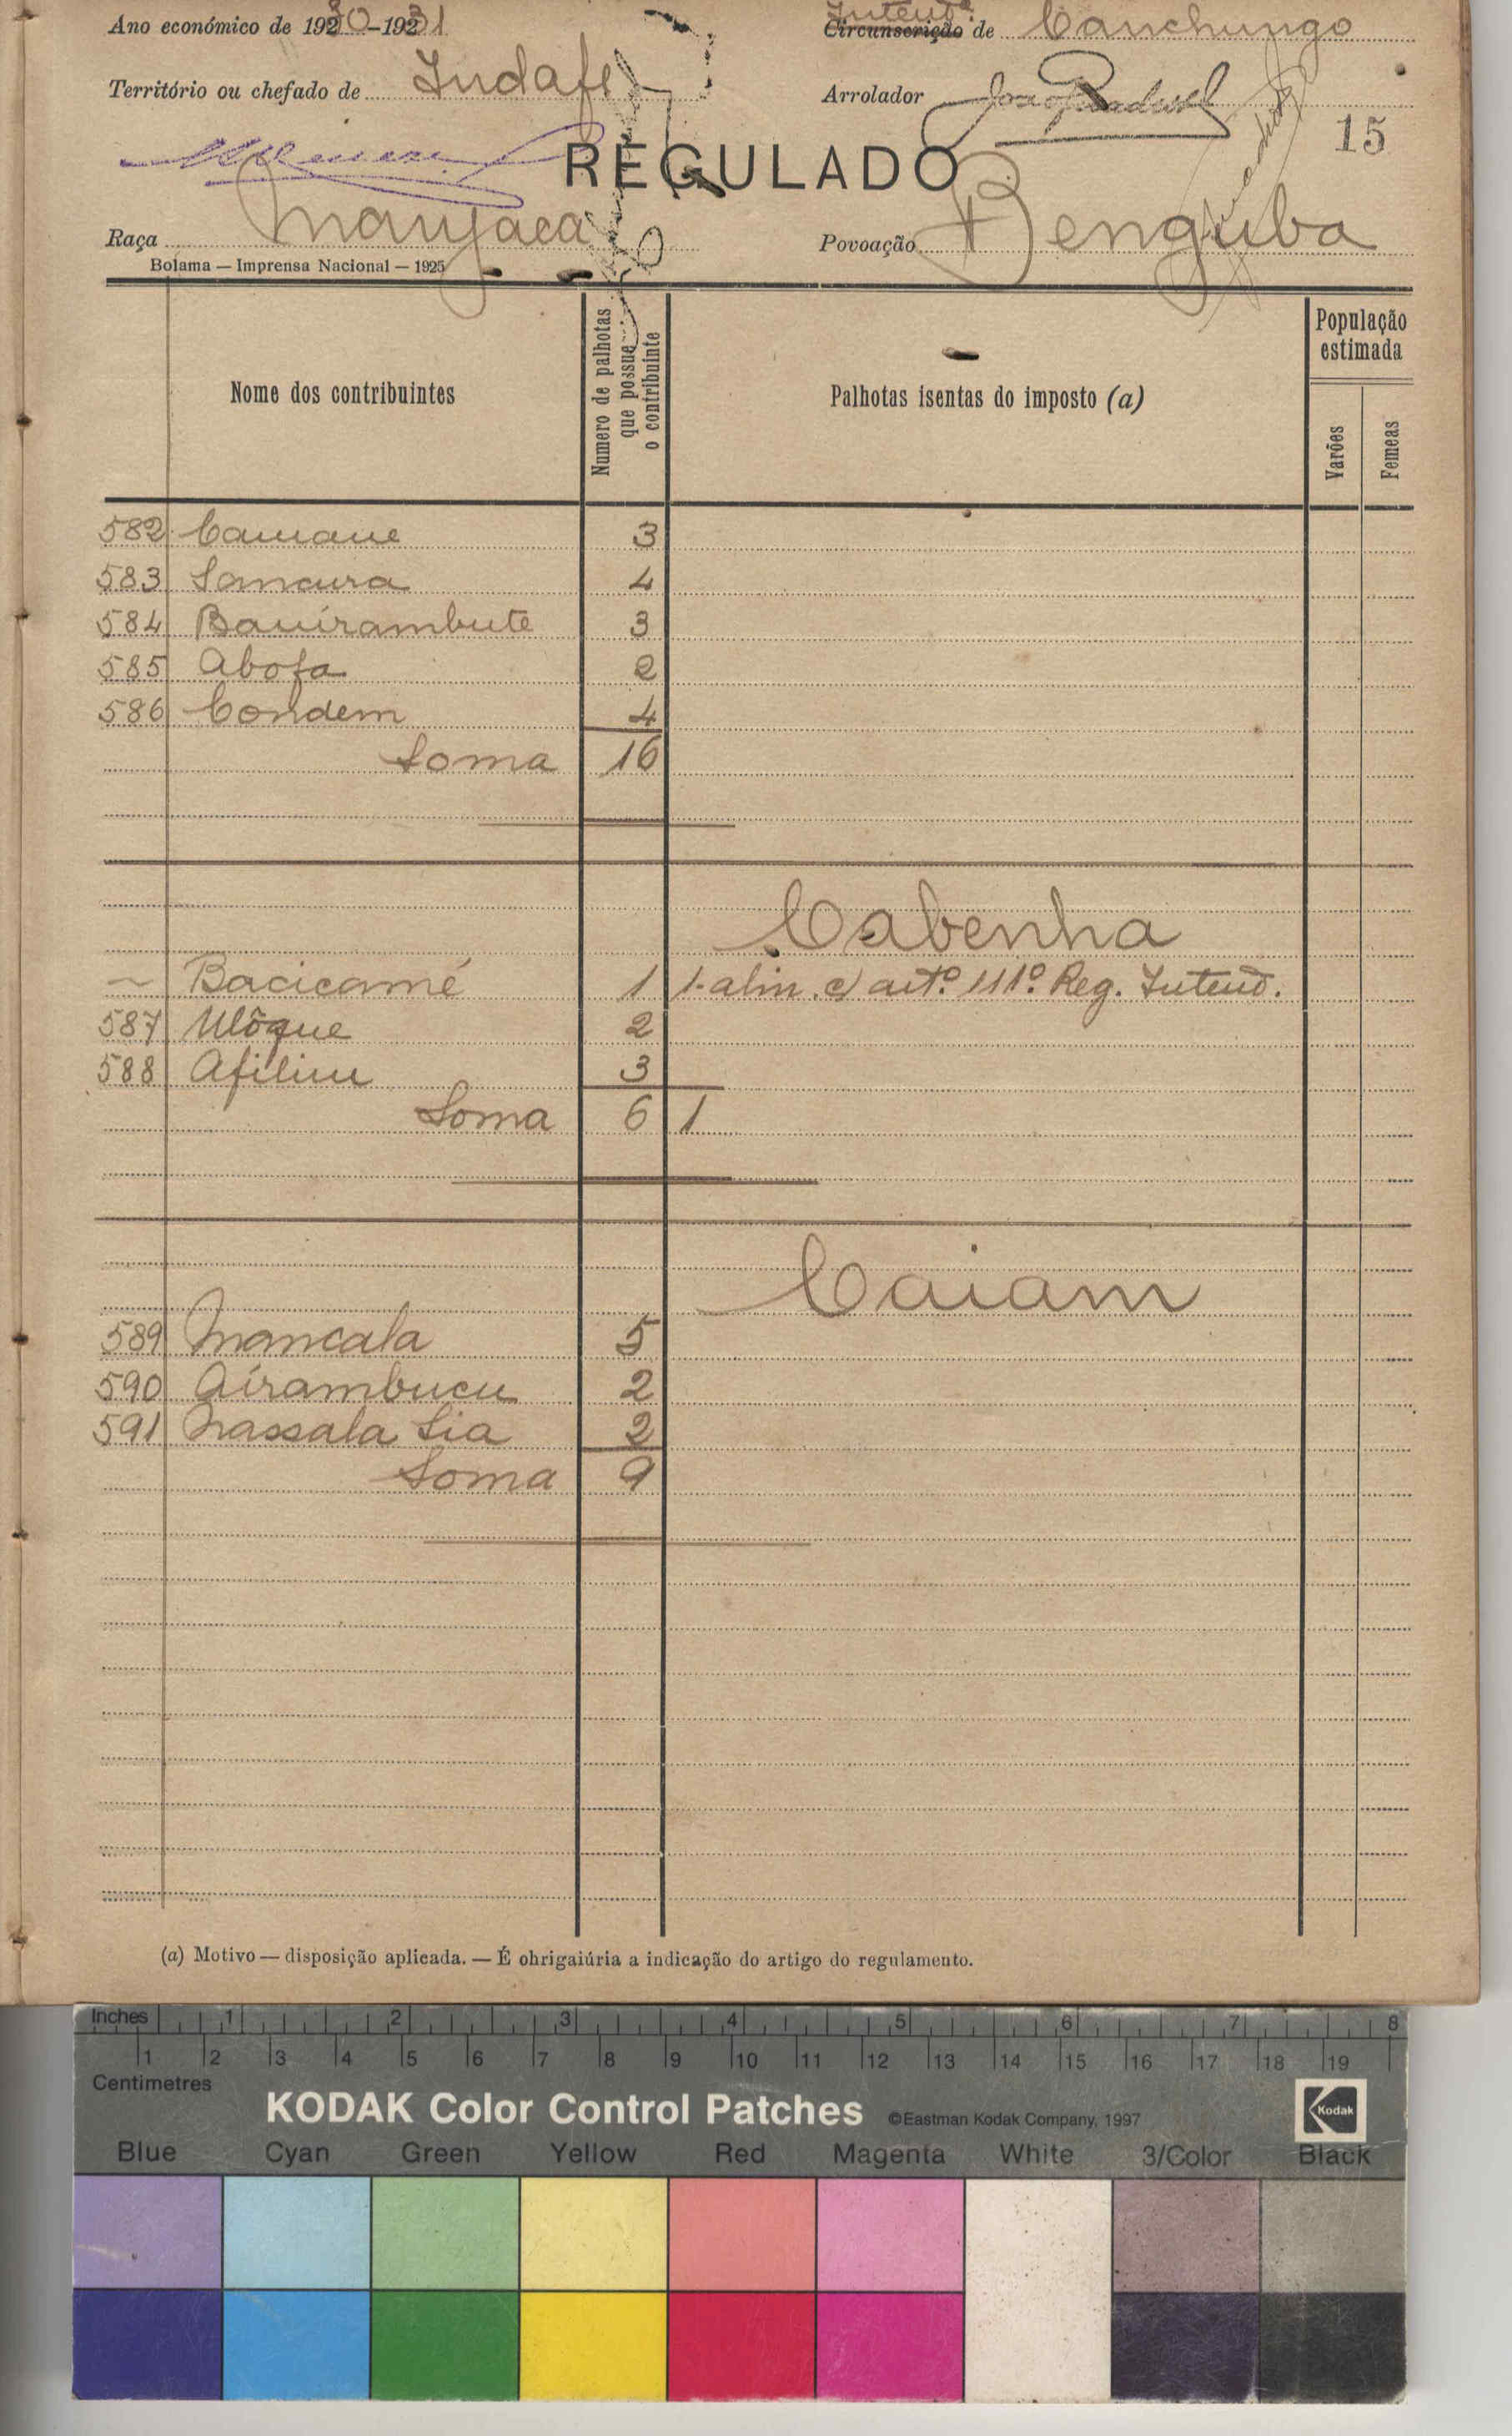 Ano económico de 1930-1931
Intendª
Circunscrição de Canchungo
Território ou chefado de Indafe
Arrolador
15
REGULADO
Raça Manjaca
Povoação Benguba
Bolama — Imprensa Nacional — 1925
Nome dos contribuintes
Numero de palhotas que possue o contribuinte
Palhotas isentas do imposto (a)
População estimada
Varões
Femeas
582 Camane 3
583 Samcura 4
584 Bauirambute 3
585 Abofa 2
586 Condem 4
Soma 16
Cabenha
~ Bacicamé 1 1-alin. c) artº 111º Reg. Intend.
587 Ulôque 2
588 Afilim 3
Soma 6 1
Caiam
589 Mancala 5
590 Airambucu 2
591 Nassala Sia 2
Soma 9
(a) Motivo — disposição aplicada. — É ohrigaiúria a indicação do artigo do regulamento.
Inches 1 2 3 4 5 6 7 8
1 2 3 4 5 6 7 8 9 10 11 12 13 14 15 16 17 18 19
Centimetres
KODAK Color Control Patches ©Eastman Kodak Company, 1997 Kodak
Blue Cyan Green Yellow Red Magenta White 3/Color Black